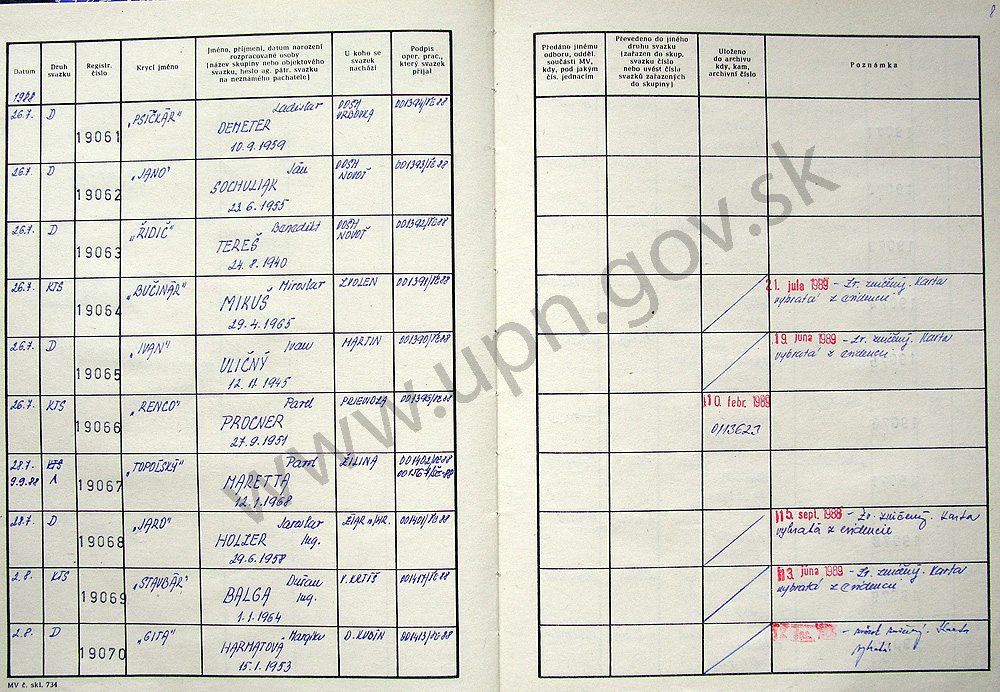 8
Datum
Druh
svazku
Registr.
číslo
Krycí jméno
Jméno, příjmení, datum narození
rozpracované osoby
(název skupiny nebo objektového
svazku, heslo ag. pátr. svazku
na neznámého pachatele)
U koho se
svazek
nachází
Podpis
oper. prac.,
který svazek
přijal
Předáno jinému
odboru, odděl.
součásti MV,
kdy, pod jakým
čís. jednacím
Převedeno do jiného
druhu svazku
(zařazen do skup.
svazku číslo
nebo uvést čísla
svazků zařazených
do skupiny)
Uloženo
do archivu
kdy, kam,
archivní číslo
Poznámka
1988
26.7. D 19061 „PSIČKÁR" Ladislav ODSH 001394/88
DEMETER VRBOVKA
10.9.1959
26.7. D 19062 „JANO" Ján ODSH 001393/88
SOCHULIAK NOVOŤ
23.6.1955
26.7. D 19063 „ŘIDIČ" Benedikt ODSH 001392/88
TEREŠ NOVOŤ
24.8.1940
26.7. KTS 19064 „BUČINÁR" Miroslav ZVOLEN 001391/88 21. júla 1989 - Zv. zničený. Karta
MIKUŠ vybratá z evidencie
29.4.1965
26.7. D 19065 „IVAN" Ivan MARTIN 001390/88 19. júna 1989 - Zv. zničený. Karta
ULIČNÝ vybratá z evidencie
12.11.1945
26.7. KTS 19066 „RENCO" Pavel PRIEVIDZA 001395/88 10. febr. 1989
PROCNER 0113623
27.9.1951
28.7. KTS 19067 „TOPOĽSKÝ" Pavol ŽILINA 001402/88
9.9.88 A MARETTA
12.1.1968
28.7. D 19068 „JARO" Jaroslav ŽIAR n/HR. 001401/88 15. sept. 1988 - Zv. zničený. Karta
HOLZER Ing. vybratá z evidencie
29.6.1958
2.8. KTS 19069 „STAVBÁR" Dušan V. KRTÍŠ 001414/88 13. júna 1989 - Zv. zničený. Karta
BALGA Ing. vybratá z evidencie
1.1.1964
2.8. D 19070 „GITA" Margita D. KUBÍN 001413/88 zničený. Karta
HARMATOVÁ vybratá
15.1.1953
MV č. skl. 734
www.upn.gov.sk